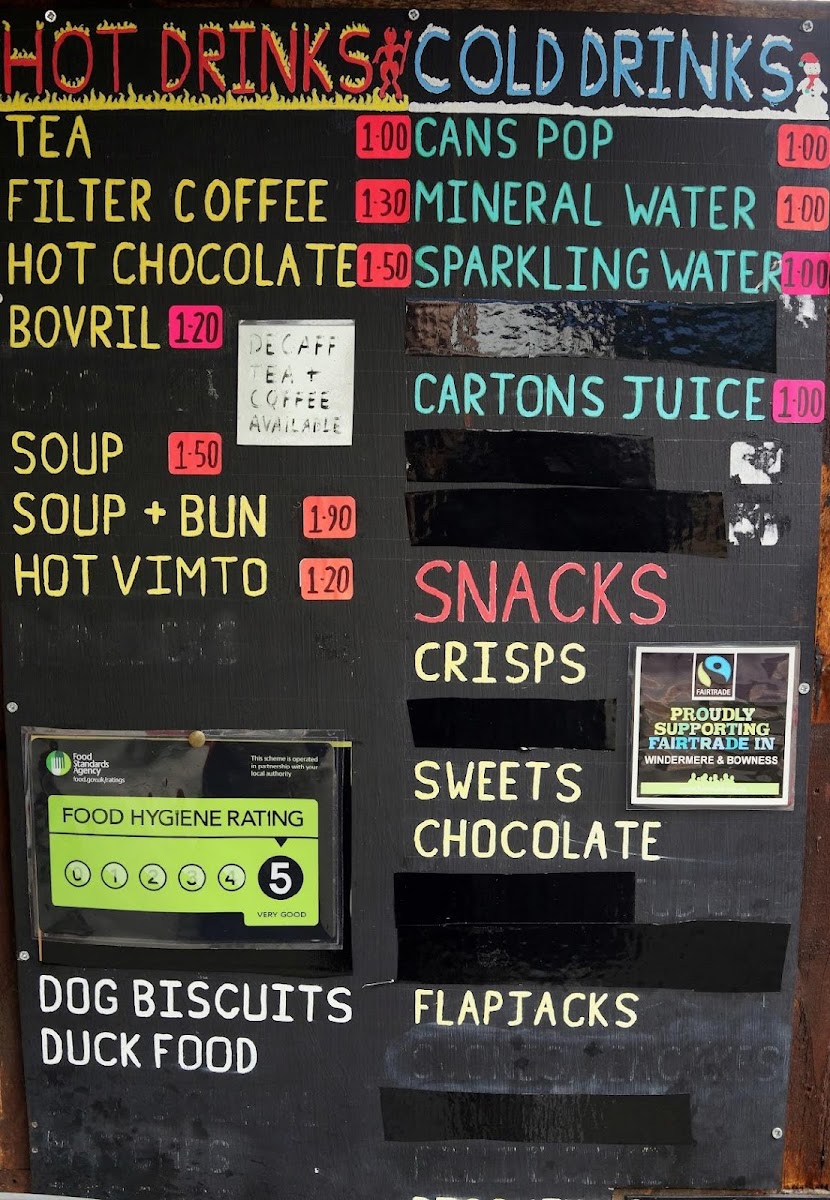 HOT DRINKS
TEA 1·00
FILTER COFFEE 1·30
HOT CHOCOLATE 1·50
BOVRIL 1·20
DECAFF
TEA +
COFFEE
AVAILABLE
SOUP 1·50
SOUP + BUN 1·90
HOT VIMTO 1·20
Food
Standards
Agency
food.gov.uk/ratings
This scheme is operated
in partnership with your
local authority
FOOD HYGIENE RATING
0 1 2 3 4 5
VERY GOOD
DOG BISCUITS
DUCK FOOD
COLD DRINKS
CANS POP 1·00
MINERAL WATER 1·00
SPARKLING WATER 1·00
CARTONS JUICE 1·00
SNACKS
CRISPS
SWEETS
CHOCOLATE
FLAPJACKS
FAIRTRADE
PROUDLY
SUPPORTING
FAIRTRADE IN
WINDERMERE & BOWNESS